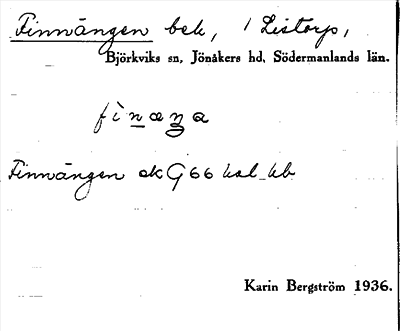 Finnängen bek, / Listorp,
Björkviks sn, Jönåkers hd, Södermanlands län.
fìnæŋa
Finnängen ek G66 hsl hb
Karin Bergström 1936.